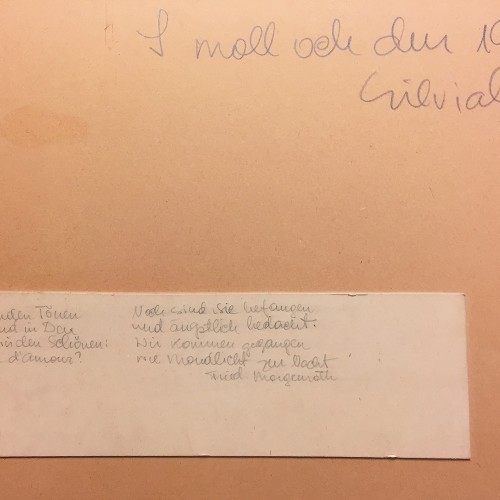 I moll och dur
Silvia
nden Tönen
und in Dur
den Schönen:
d'amour?
Noch sind sie befangen
und ängstlich bedacht:
Wir kommen gegangen
wie Mondlicht zur Nacht
Fried Morgenroth